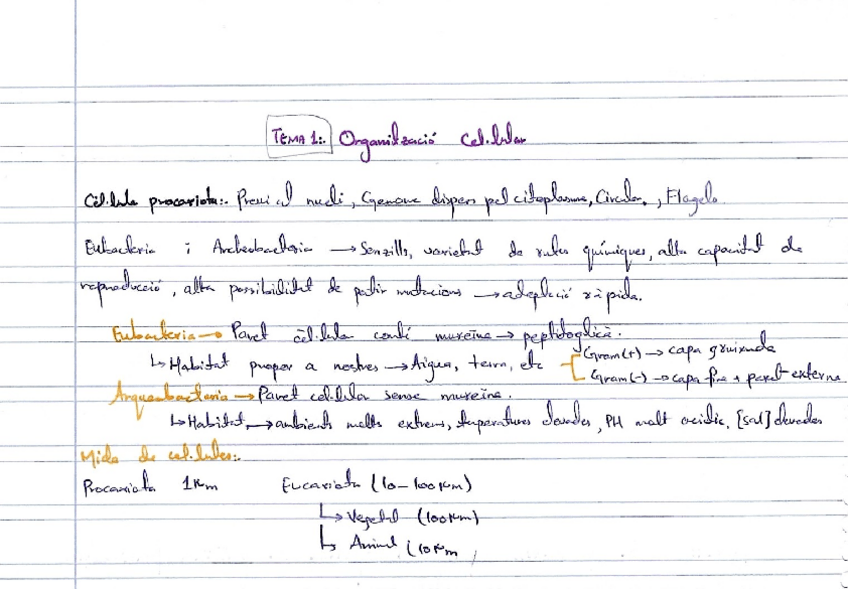 TEMA 1:. Organització Cel·lular
Cèl·lula procariota:. Previ al nucli, Genoma dispers pel citoplasma, Circular, Flagelo
Eubacteria i Archeobacteria → Senzills, varietat de rutes químiques, alta capacitat de
reproducció, alta possibilitat de patir mutacions → adaptació ràpida.
Eubacteria → Paret cèl·lula conté mureïna → peptidoglicà.
Gram(+) → capa gruixuda
↳ Habitat proper a nostres → Aigua, terra, etc
Gram(-) → capa fina + paret externa
Arqueobacteria → Paret cel·lula sense mureïna.
↳ Habitat → ambients molts extrems, temperatures elevades, PH molt acidic, [sal] elevades
Mida de cel·lules:.
Procariota 1µm Eucariota (10-100µm)
↳ Vegetal (100µm)
↳ Animal (10µm